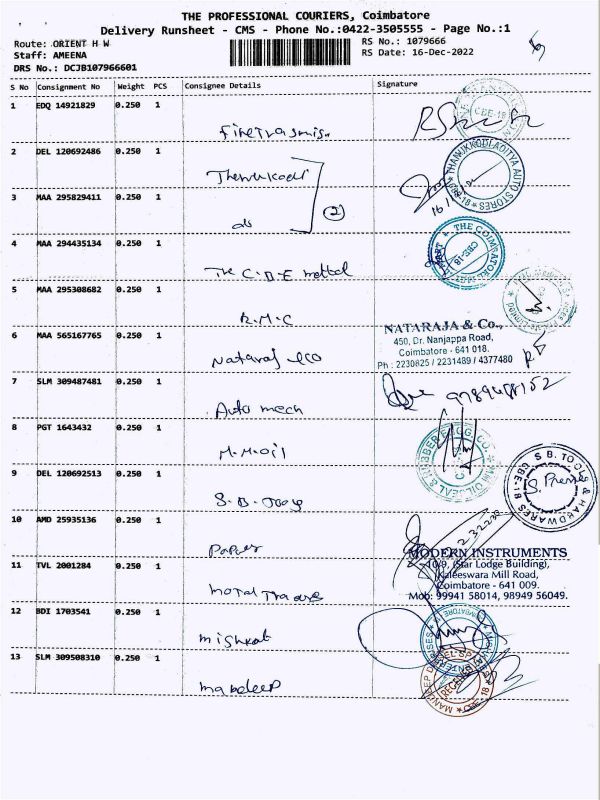 THE PROFESSIONAL COURIERS, Coimbatore
Delivery Runsheet - CMS - Phone No.:0422-3505555 - Page No.:1
Route: ORIENT H W
Staff: AMEENA
DRS No.: DCJB107966601
RS No.: 1079666
RS Date: 16-Dec-2022
S No Consignment No Weight PCS Consignee Details Signature
1 EDQ 14921829 0.250 1
CBE-18
2 DEL 120692486 0.250 1
THANUKKODI ADITYA AUTO STORES
3 MAA 295829411 0.250 1 do
(2)
4 MAA 294435134 0.250 1 The C.B.E
THE COIMBATORE
CBE-18
5 MAA 295308682 0.250 1 R.M.C
6 MAA 565167765 0.250 1 Nataraj &co
NATARAJA & Co.,
450, Dr. Nanjappa Road,
Coimbatore - 641 018.
Ph : 2230825 / 2231489 / 4377480
7 SLM 309487481 0.250 1 Auto mech
8 PGT 1643432 0.250 1 M.M.Oil
9 DEL 120692513 0.250 1 S.B. Tools
S.B. TOOLS & HARDWARES
CBE-18
10 AMD 25935136 0.250 1
11 TVL 2001284 0.250 1
MODERN INSTRUMENTS
10/9, (Star Lodge Building),
Kaleeswara Mill Road,
Coimbatore - 641 009.
Mob: 99941 58014, 98949 56049.
12 BDI 1703541 0.250 1 mishkat
13 SLM 309508310 0.250 1 mandeep
RECEIVED
CBE-18